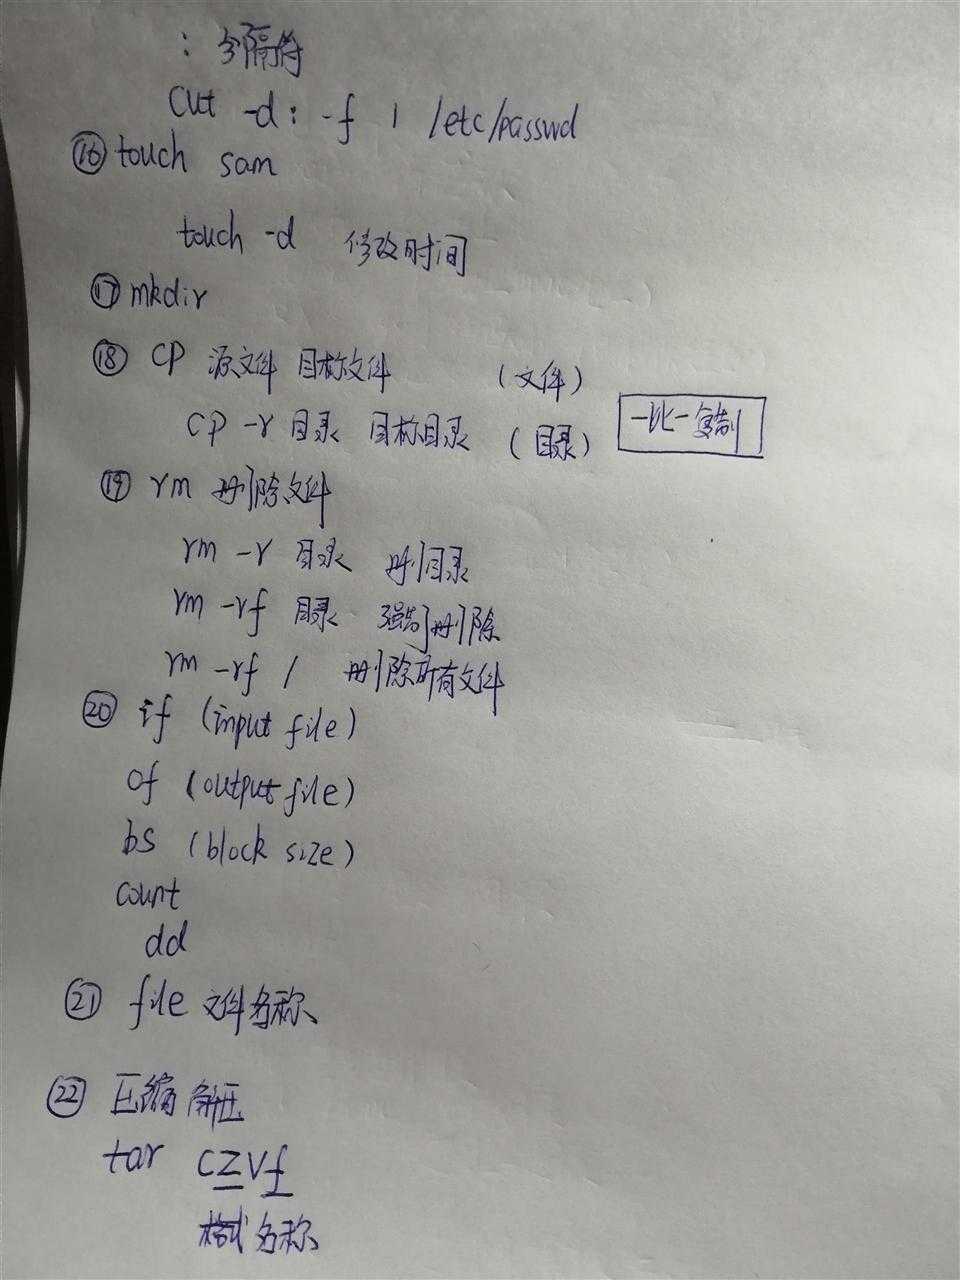 : 分隔符
cut -d: -f 1 /etc/passwd
⑯ touch sam
touch -d 修改时间
⑰ mkdir
⑱ cp 源文件 目标文件 (文件)
cp -r 目录 目标目录 (目录) 一比一复制
⑲ rm 删除文件
rm -r 目录 删目录
rm -rf 目录 强制删除
rm -rf / 删除所有文件
⑳ if (input file)
of (output file)
bs (block size)
count
dd
㉑ file 文件名称
㉒ 压缩 解压
tar czvf
格式 名称